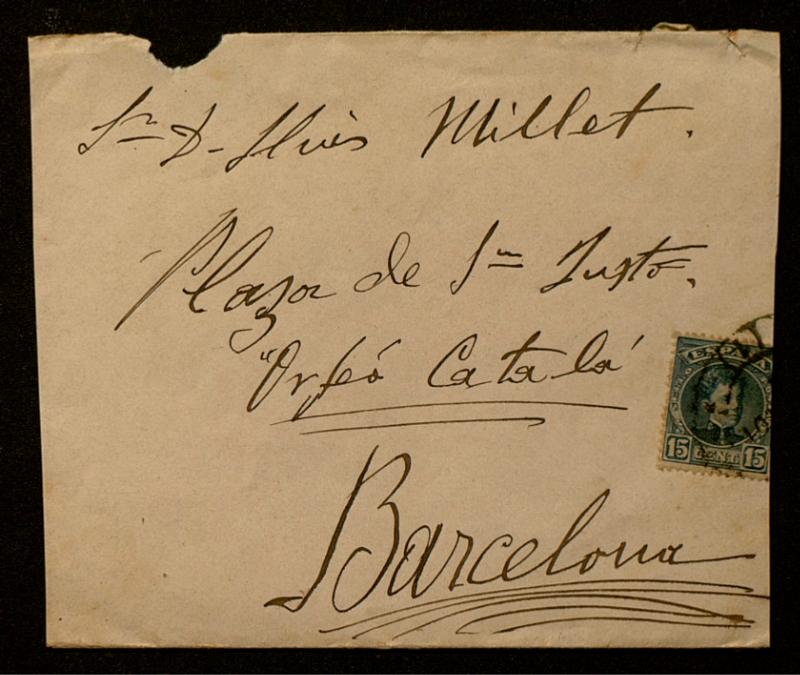 Sr D- Lluis Millet.
Plaza de Sn Justo.
"Orfeó Catalá"
Barcelona
15 CENTS 15